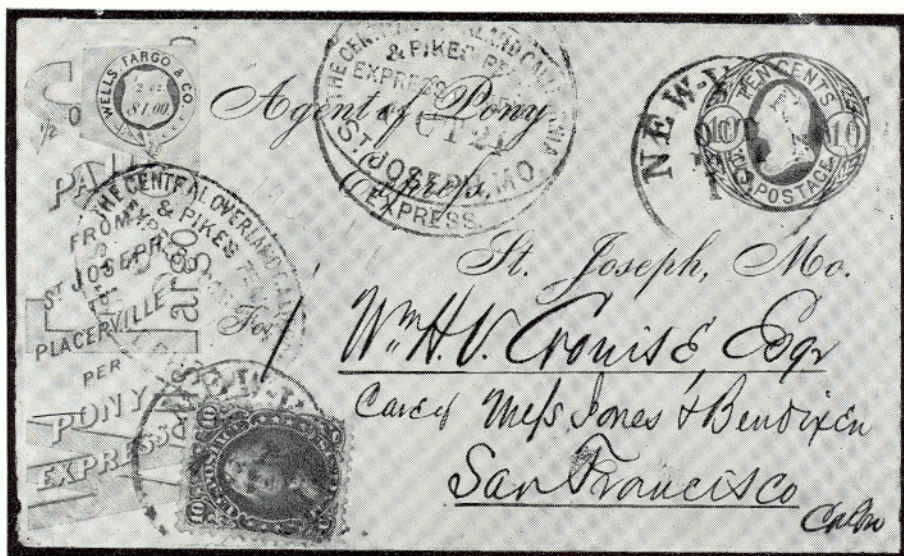 WELLS, FARGO & CO.
1/2 oz.
$1.00
1/2 O
PAID
FROM
ST JOSEPH
PLACERVILLE
PER
PONY
EXPRESS
THE CENTRAL OVERLAND CALIFORNIA
& PIKES PEAK
EXPRESS COMPANY
Agent of Pony
Express,
THE CENTRAL OVERLAND CALIFORNIA
& PIKES PEAK
EXPRESS
OCT 21
ST JOSEPH, MO.
EXPRESS
NEW-Y
TEN CENTS
10 10
U.S. POSTAGE
St. Joseph, Mo.
For
Wm H. V. Cronise Esqr
Care of Mess Jones & Bendixen
San Francisco
10 10